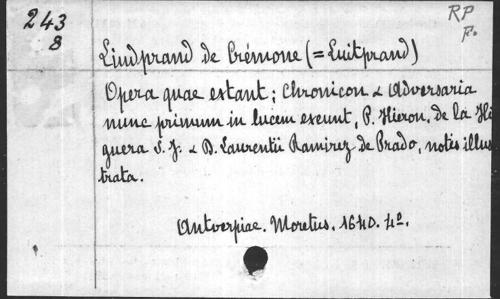 243
8
RP
F.
Liudprand de Crémone (= Luitprand)
Opera quae estant; Chronicon & Adversaria
nunc primum in lucem exeunt, P. Hieron. de la Hi
guera S. J. & D. Laurentii Ramirez de Prado, notis illus
trata.
Antverpiae. Moretus. 1640. 4º.